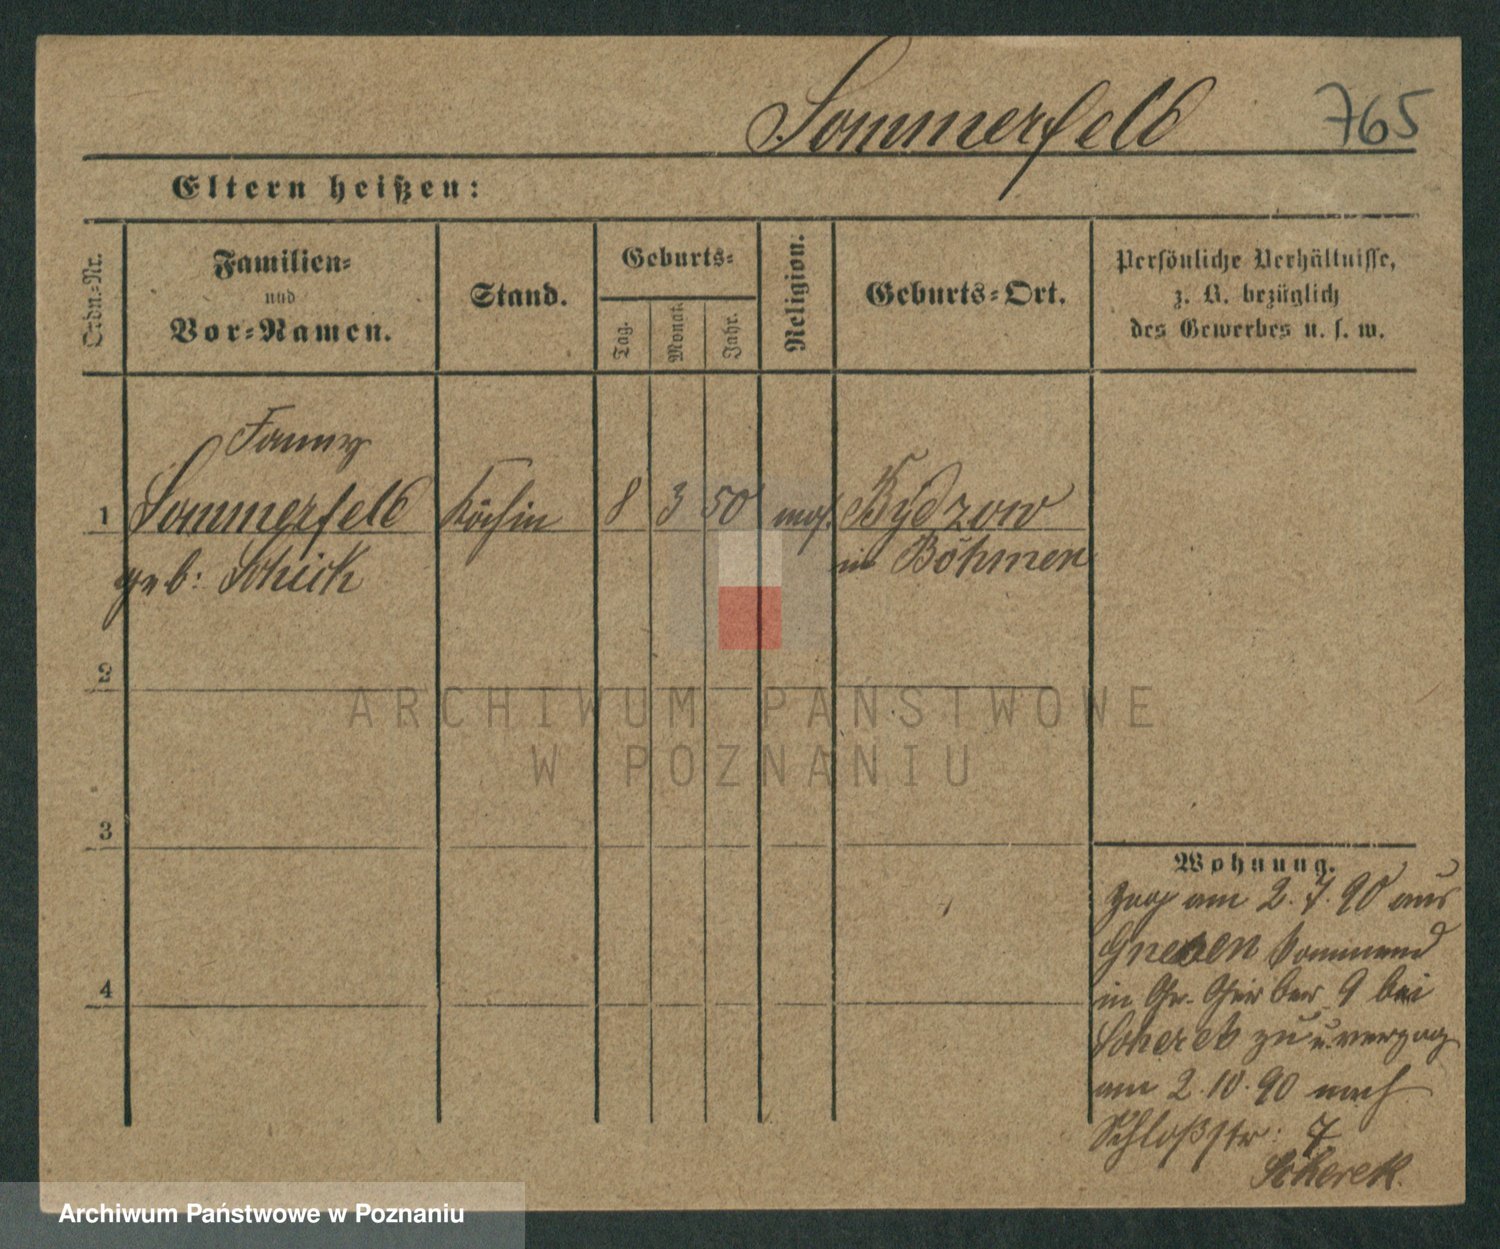 Sommerfeld 765
Eltern heißen:
Ordn.-Nr.
Familien-
und
Vor-Namen.
Stand.
Geburts-
Tag.
Monat.
Jahr.
Religion.
Geburts-Ort.
Persönliche Verhältnisse,
z. B. bezüglich
des Gewerbes u. s. w.
Fanny
1 Sommerfeld Köchin 8 3 50 mos. Bydzow
geb: Schick in Böhmen
2
3
4
Wohnung.
zog am 2.7.90 aus
Gnesen kommend
in Gr. Gerber 9 bei
Scherek zu u. verzog
am 2.10.90 nach
Schloßstr: 7
Scherek.
ARCHIWUM PAŃSTWOWE
W POZNANIU
Archiwum Państwowe w Poznaniu